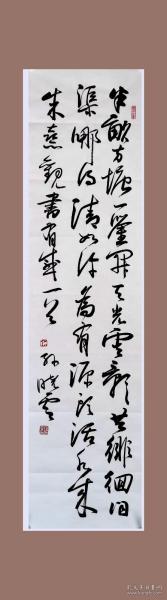 半亩方塘一鉴开天光云影共徘徊问
渠哪得清如许为有源头活水来
朱熹观书有感一首 孙晓云